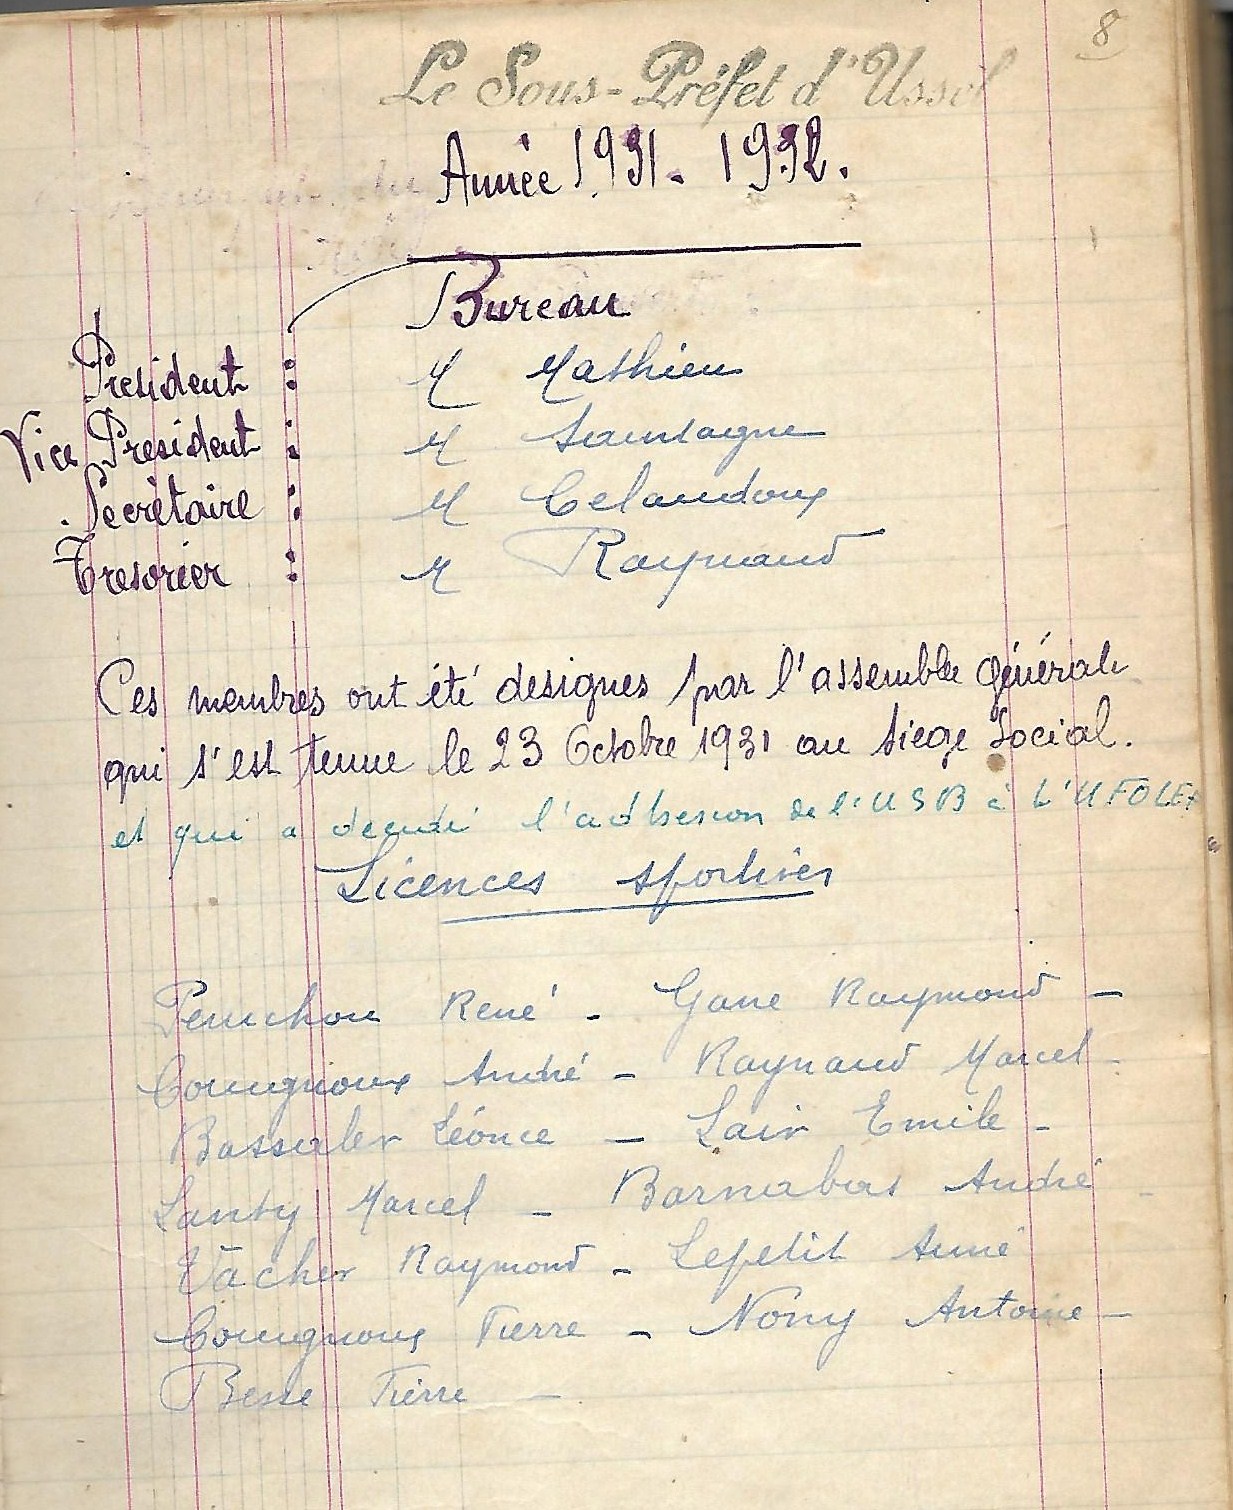 8
Le Sous-Préfet d'Ussel
Année 1931. 1932.
Bureau
President : M Mathieu
Vice President : M Saintagne
Secrètaire : M Celaudoux
Tresorier : M Raynaud
Ces membres ont été designes par l'assemblée générale
qui s'est tenue le 23 Octobre 1931 au siege Social.
et qui a decidé l'adhesion de l'USB à L'UFOLEP
Licences sportives
Penichou René - Gane Raymond -
Coungnoux André - Raynaud Marcel -
Bassaler Léonce - Lair Emile -
Lanty Marcel - Barnabas André -
Vacher Raymond - Lepetit Aimé
Coungnoux Pierre - Nony Antoine -
Besse Pierre -